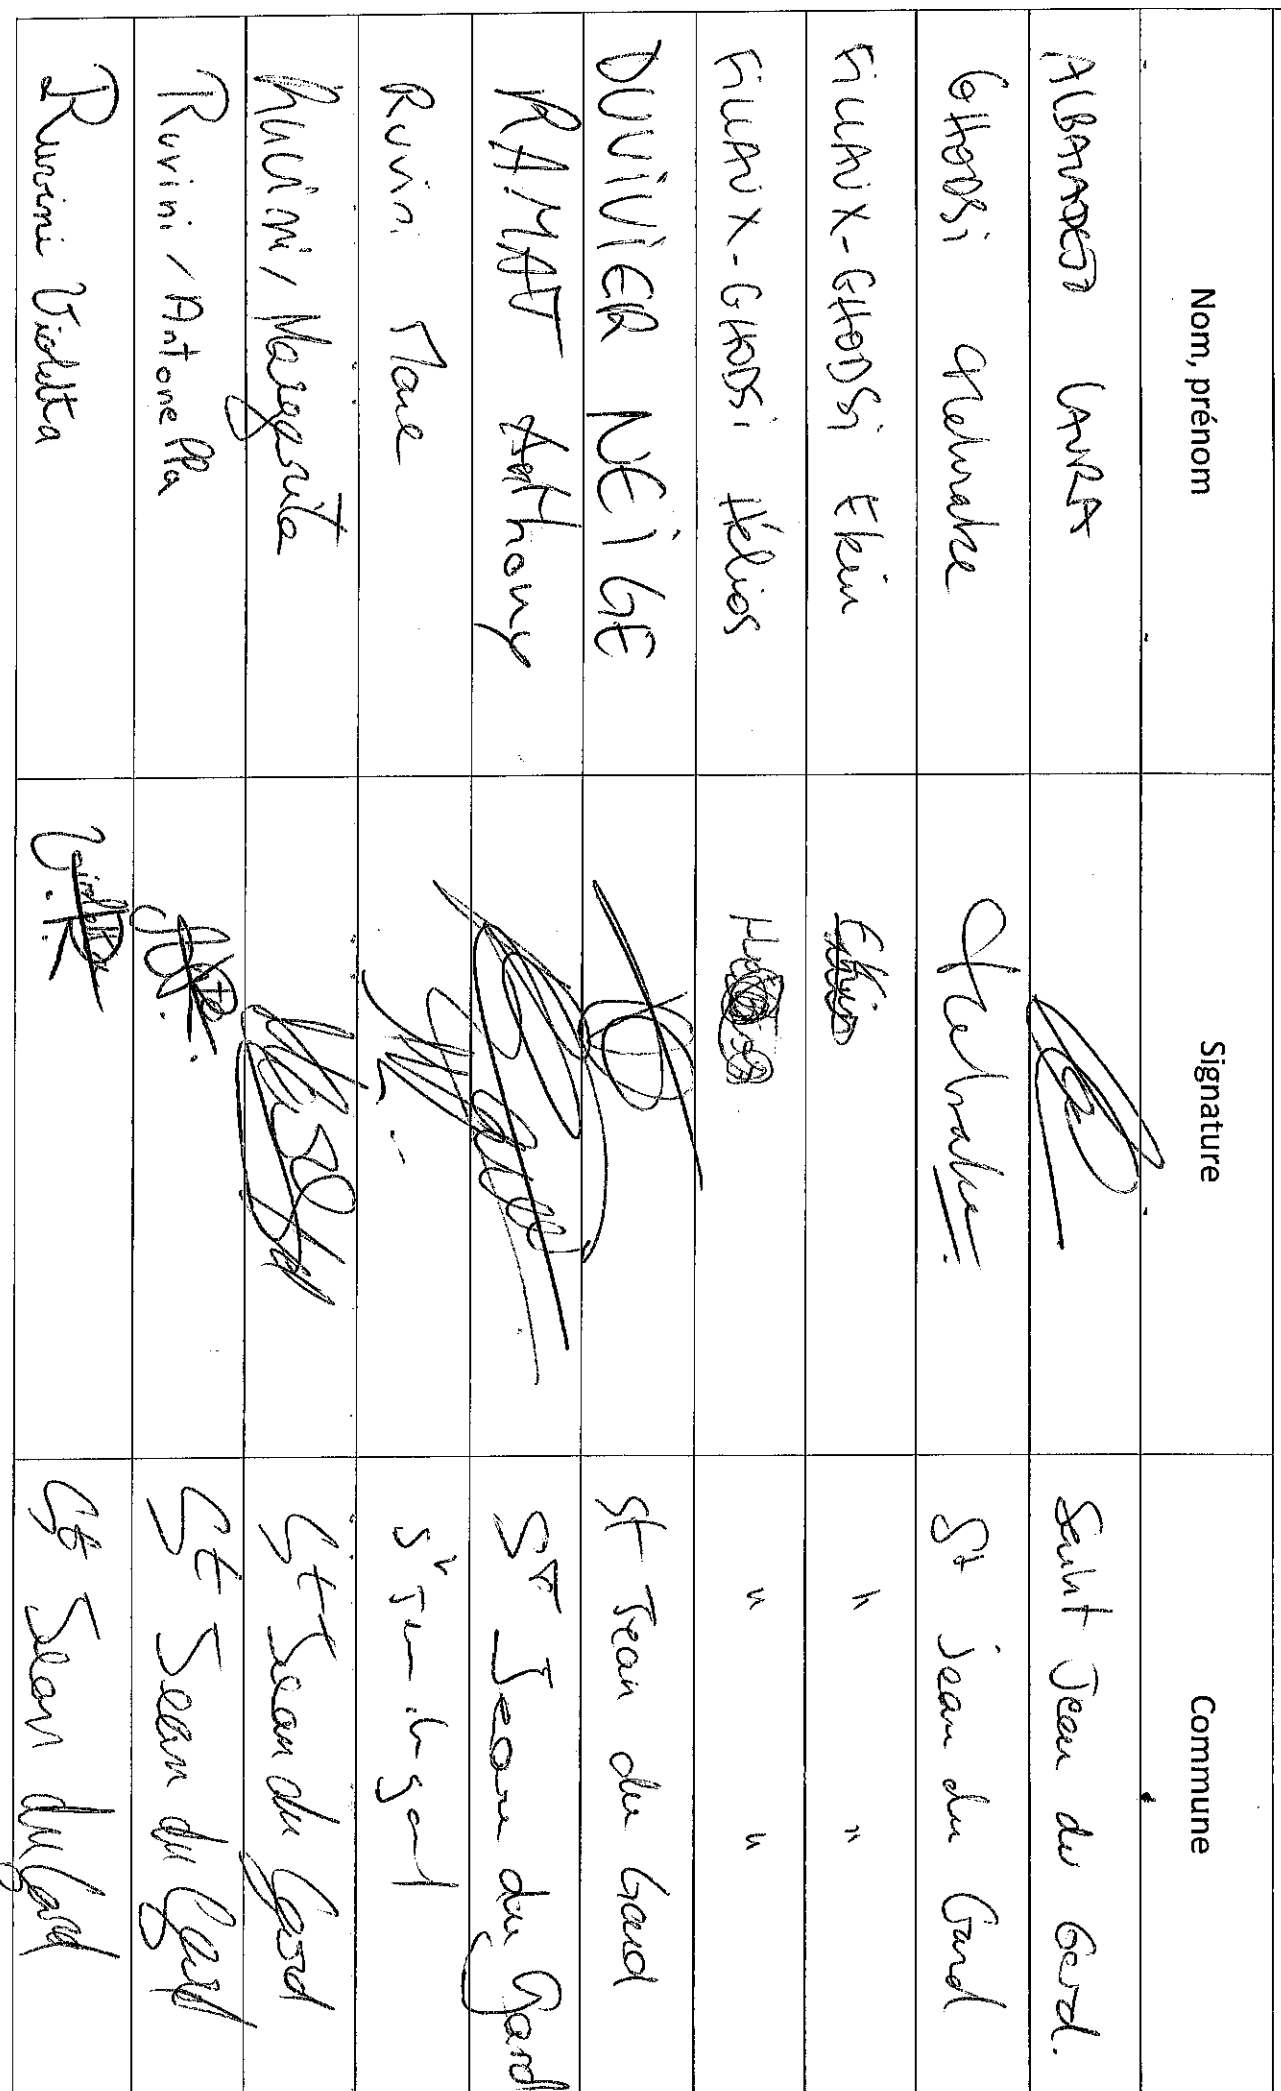 Nom, prénom Signature Commune
ALBALADEJO LAURA Saint Jean du Gard.
GHODSi Mehrake Mehrake St Jean du Gard
FiLLAUX-GHODSi Ekin Ekin " "
FiLLAUX-GHODSi Hélios Hélios " "
DUViViER NEiGE St Jean du Gard
RAMAT AntHony St Jean du Gard
Ruvini Marie St Jean du gard
Ruvini, Margarita St Jean du Gard
Ruvini, Antonella St Jean du Gard
Ruvini Violetta Violetta R. St Jean du Gard